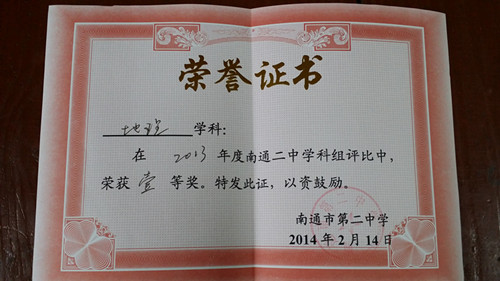 荣誉证书
地理 学科:
在 2013 年度南通二中学科组评比中,
荣获 壹 等奖。特发此证,以资鼓励。
南通市第二中学
2014 年 2 月 14 日